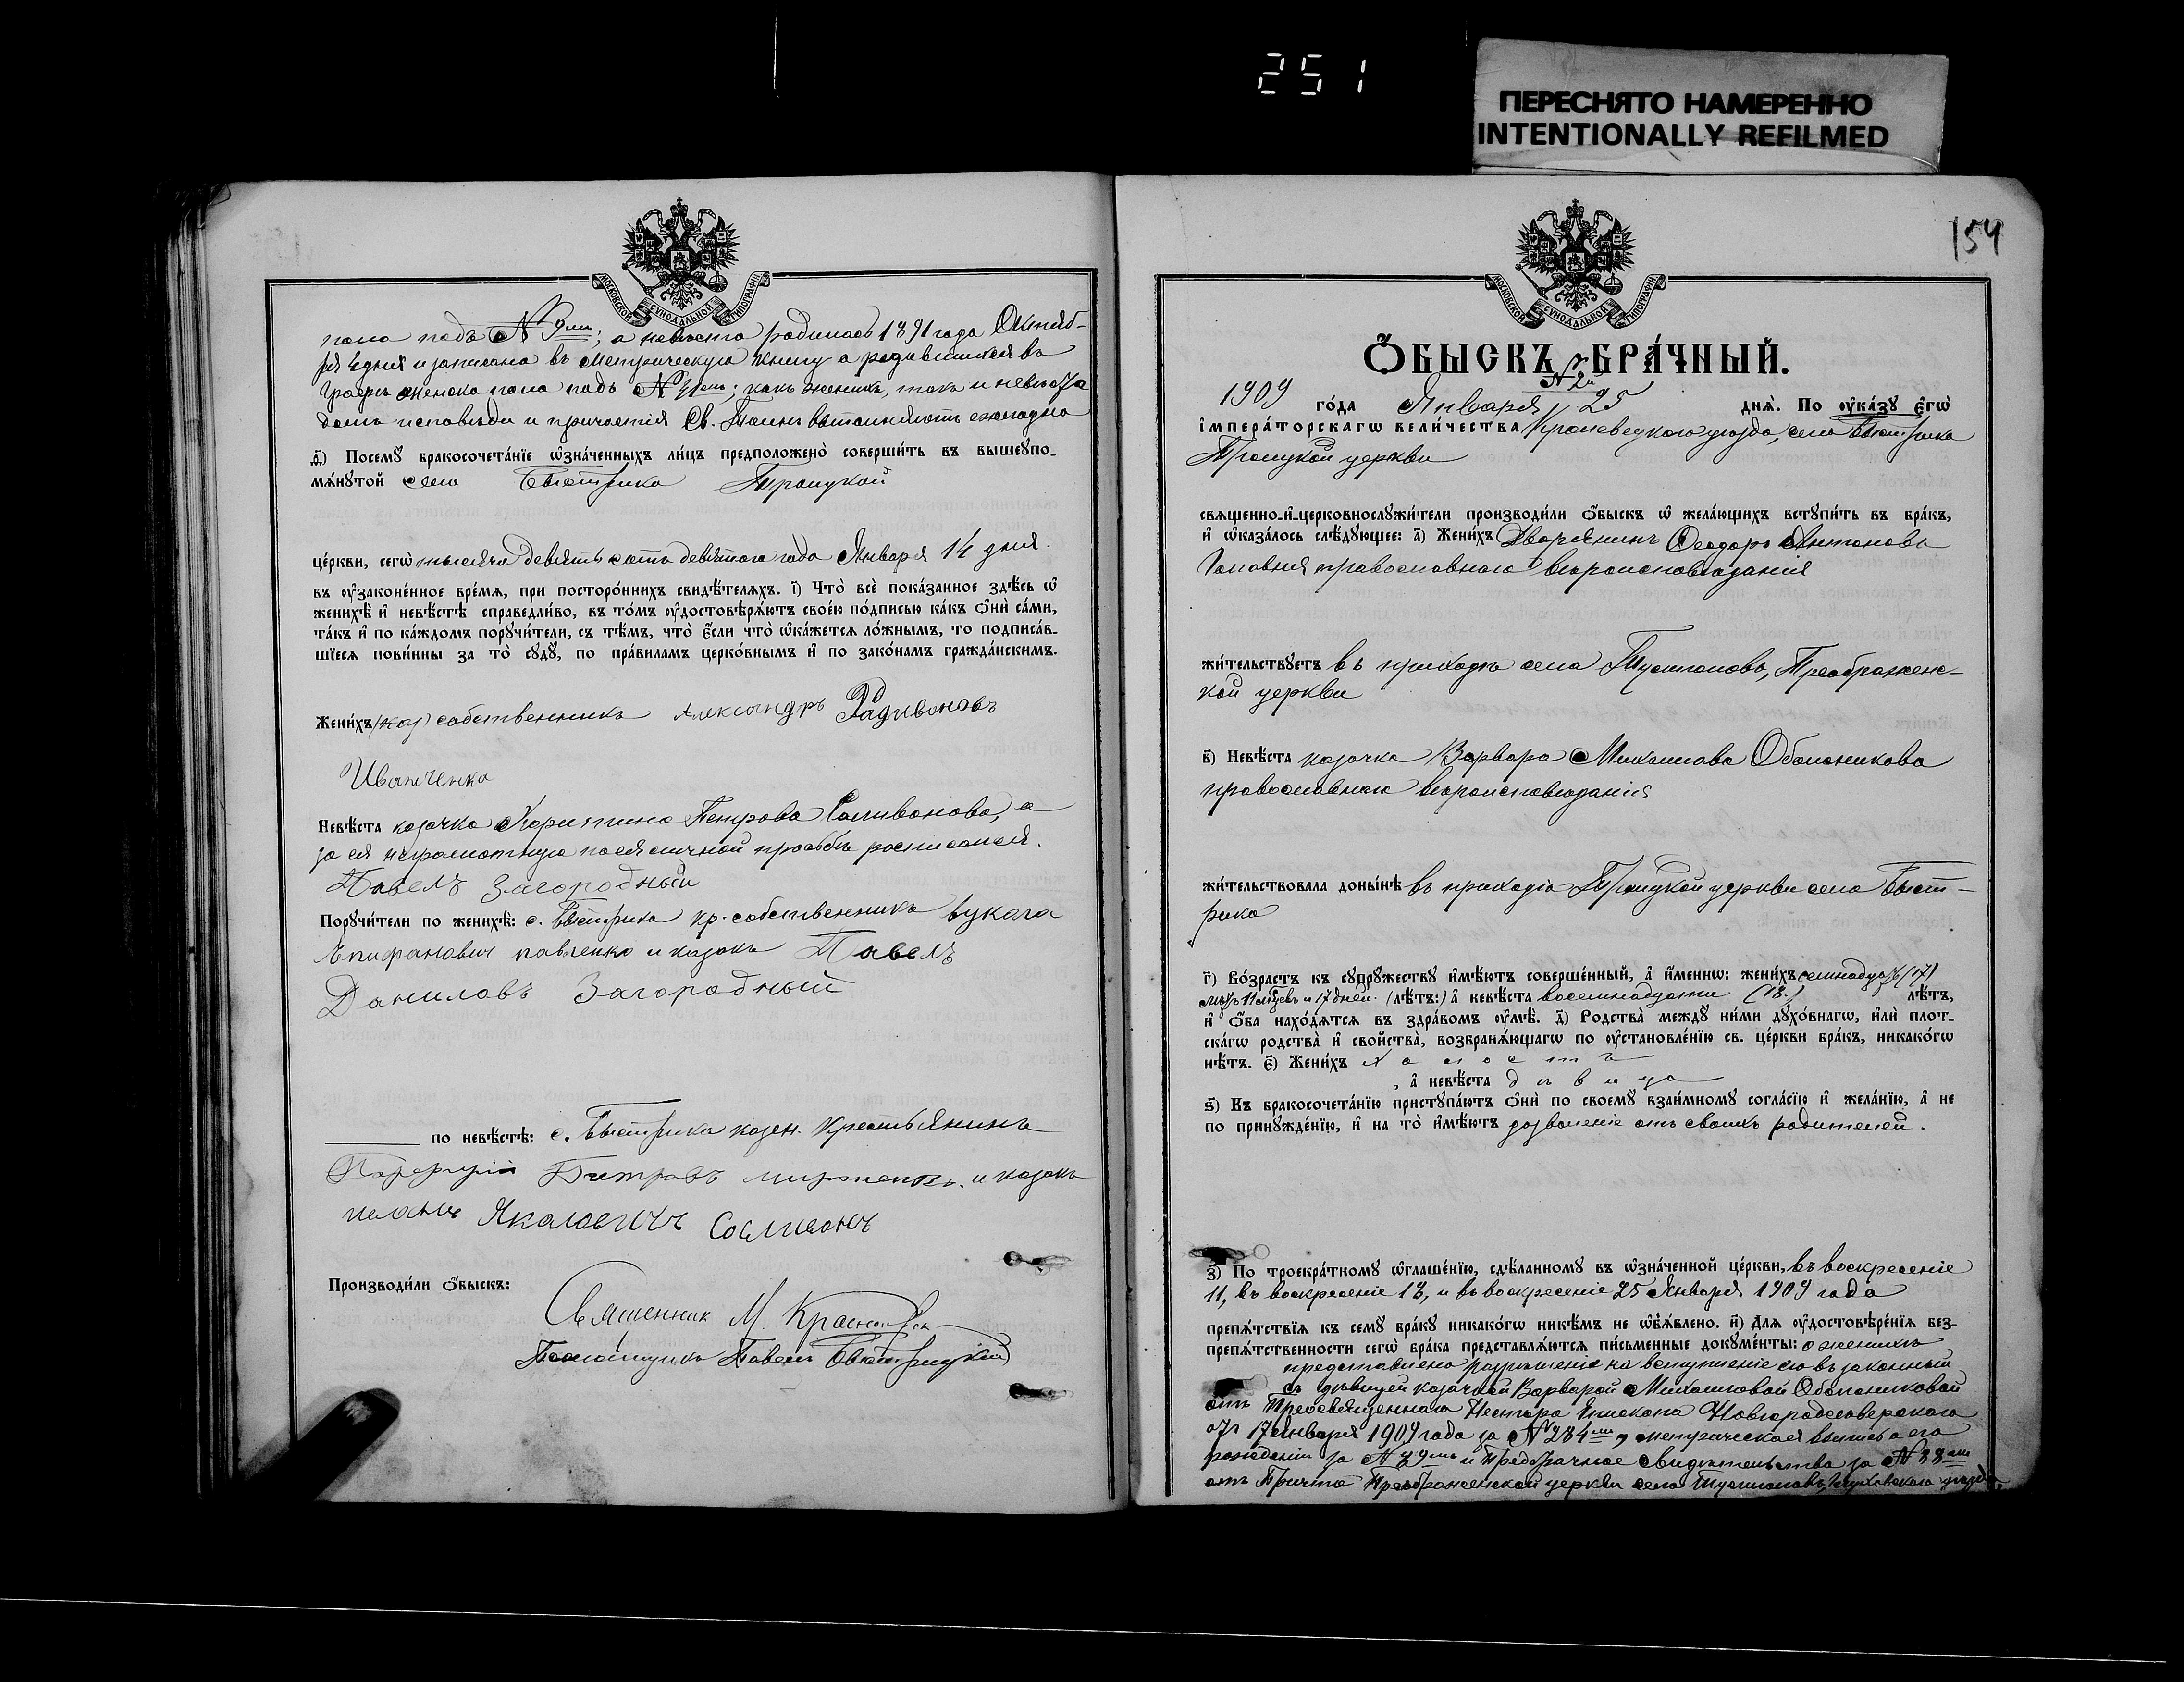 251
ПЕРЕСНЯТО НАМЕРЕННО
INTENTIONALLY REFILMED
МОСКОВСКОЙ СѴНОДАЛЬНОЙ ТИПОГРАФІИ
пола подъ № 9мъ; а невѣста родилась 1891 года Октяб-
ря дня и записана въ метрическую книгу о родившихся въ
графѣ женска пола подъ № 41мъ; какъ женихъ, такъ и невѣста
долгъ исповѣди и причастія Св. Таинъ выполняютъ ежегодно
Посемꙋ бракосочета́нїе ѡ҆зна́ченныхъ ли́цъ предположено̀ соверши́ть въ вышеꙋпо-
мѧ́нꙋтой села Быстрика Троицкой
це́ркви, сегѡ̀ тысяча девятьсотъ девятого года Января 14 дня.
въ ᲂу҆зако́ненное вре́мѧ, при посторо́ннихъ свидѣ́телѧхъ. і҃) Что̀ всѐ пока́занное здѣ́сь ѡ҆
женихѣ̀ и҆ невѣ́стѣ справедли́во, въ то́мъ ᲂу҆достовѣрѧ́ютъ свое́ю по́дписью ка́къ ѻ҆нѝ са́ми,
та́къ и҆ по ка́ждомъ порꙋчи́тели, съ тѣ́мъ, что̀ є҆́сли что̀ ѡ҆ка́жетсѧ ло́жнымъ, то подписа́в-
шїесѧ пови́нны за то̀ сꙋдꙋ̀, по пра́виламъ церко́внымъ и҆ по зако́намъ гражда́нскимъ.
Жени́хъ собственникъ Александръ Радивоновъ
Иванченко
Невѣ́ста казачка Харитина Петрова Саливонова, а
за ея неграмотную по ея личной просьбѣ росписался
Павелъ Загородный
Порꙋчи́тели по женихѣ̀: с. Быстрика кр. собственникъ вукола
Епифанович павленко и казакъ Павелъ
Даниловъ Загородный
по невѣ́стѣ: с. Быстрика казен. крестьянинъ
Петровъ и казакъ
Якалевичъ
Производи́ли ѻ҆́быскъ:
Священник М.
Псаломщикъ Павелъ Быстрицкій
154
МОСКОВСКОЙ СѴНОДАЛЬНОЙ ТИПОГРАФІИ
Ѻ҆́БЫСКЪ БРА́ЧНЫЙ.
№ 2й
1909 го́да Января 25 днѧ̀. По ᲂу҆ка́зꙋ є҆гѡ̀
і҆мпера́торскагѡ вели́чества Кролевецкого уѣзда, села Быстрика
Троицкой церкви
свѧще́нно-и҆-церковнослꙋжи́тели производи́ли ѻ҆́быскъ ѡ҆ жела́ющихъ встꙋпи́ть въ бра́къ,
и҆ ѡ҆каза́лось слѣ́дꙋющее: а҃) Жени́хъ Дворянинъ Ѳеодоръ Антоновъ
Головня православнаго вѣроисповѣданія
жи́тельствꙋетъ въ приходѣ села Тулиголовъ, Преображенс-
кой церкви
в҃) Невѣ́ста казачка Варвара Михаилова Оболоникова
православнаго вѣроисповѣданія
жи́тельствовала доны́нѣ въ приходѣ Троицкой церкви села Быст-
рика
г҃) Во́зрастъ къ сꙋпрꙋ́жествꙋ и҆мѣ́ютъ соверше́нный, а҆ и҆́меннѡ: жени́хъ семнадцать (17)
лѣтъ 11 мѣсяцевъ и 17 дней. (лѣ́тъ:) а҆ невѣ́ста восемнадцати (18.) лѣ́тъ,
и҆ ѻ҆́ба нахо́дѧтсѧ въ здра́вомъ ᲂу҆мѣ̀. д҃) Родства̀ междꙋ ни́ми дꙋхо́внагѡ, и҆лѝ плот-
ска́гѡ родства̀ и҆ свойства̀, возбранѧ́ющагѡ по ᲂу҆становле́нїю св. це́ркви бра́къ, никако́гѡ
нѣ́тъ. є҃) Жени́хъ холостъ
, а҆ невѣ́ста дѣвица
ѕ҃) Къ бракосочета́нїю пристꙋпа́ютъ ѻ҆нѝ по своемꙋ взаи́мномꙋ согла́сїю и҆ жела́нїю, а҆ не
по принꙋжде́нїю, и҆ на то̀ и҆мѣ́ютъ дозволеніе отъ своихъ родителей.
з҃) По троекра́тномꙋ ѡ҆глаше́нїю, сдѣ́ланномꙋ въ ѡ҆зна́ченной це́ркви, въ воскресеніе
11, въ воскресеніе 18, и въ воскресеніе 25 Января 1909 года
препѧ́тствїѧ къ семꙋ̀ бра́кꙋ никако́гѡ никѣ́мъ не ѡ҆б̾ѧ́влено. и҃) Длѧ ᲂу҆достовѣре́нїѧ без-
препѧ́тственности сегѡ̀ бра́ка представлѧ́ютсѧ пи́сьменные докꙋме́нты: о женихѣ
представлено разрѣшеніе на вступленіе его въ законный
съ дѣвицей казачкой Варварой Михаиловой Оболониковой
отъ Преосвященнаго Нестора Епископа Новгородсѣверскаго
отъ 17 Января 1909 года за № 284мъ, метрическая выпись о его
рожденіи за № 39мъ и предбрачное свидѣтельство за № 38мъ
отъ Причта Преображенской церкви села Тулиголовъ, Глуховского уѣзда